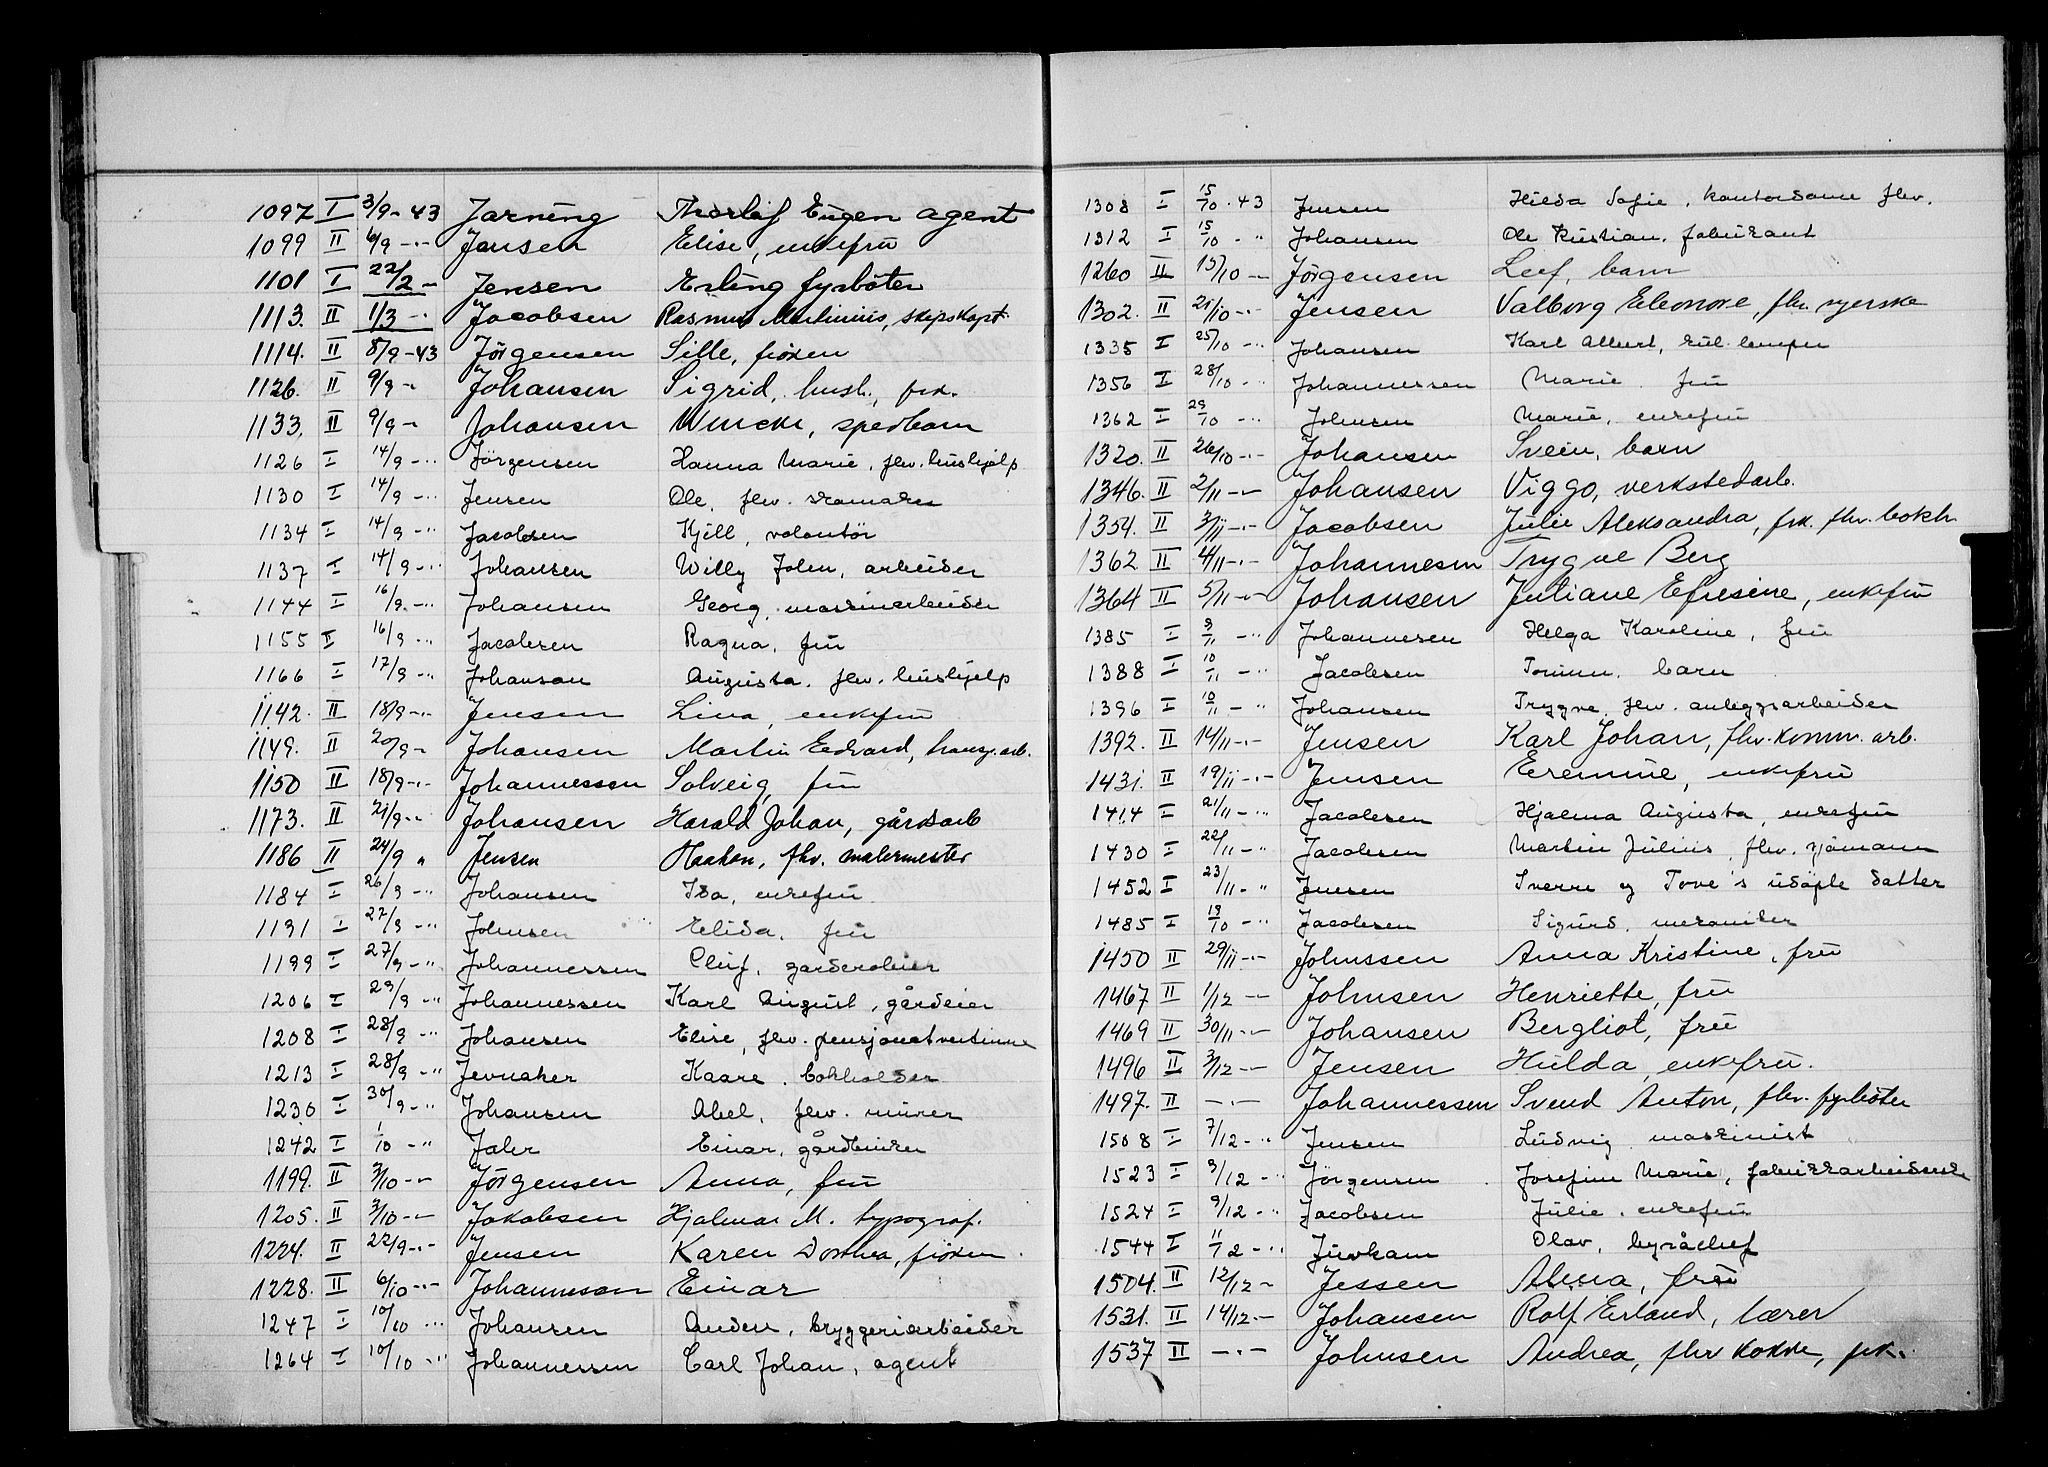 1097 I 3/9-43 Jarning Thorleif Eugen agent
1099 II 6/9 -"- Jansen Elise, enkefru
1101 I 22/2 - Jensen Erling fyrböter
1113. II 1/3 -"- Jacobsen Rasmus Martinius, skipskapt.
1114. II 8/9-43 Jörgensen Sille, fröken
1126. II 9/9 -"- Johansen Sigrid, hush., frk.
1133. II 9/9 -"- Johansen Wencke, spedbarn
1126 I 14/9 -"- Jörgensen Hanna Marie, fhv. hushjelp
1130 I 14/9 -"- Jensen Ole, fhv. skomaker
1134 I 14/9 -"- Jacobsen Kjell, volontör
1137 I 14/9 -"- Johansen Willy John, arbeider
1144 I 16/9 -"- Johansen Georg, maskinarbeider
1155 I 16/9 -"- Jacobsen Ragna, fru
1166 I 17/9 -"- Johanson Augusta, fhv. hushjelp
1142. II 18/9 -"- Jensen Lina, enkefru
1149. II 20/9 -"- Johansen Martin Edvard, arb.
1150 II 18/9 -"- Johannessen Solveig, fru
1173. II 21/9 -"- Johansen Harald Johan, gårdsarb
1186 II 24/9 " Jensen Haakon, fhv. malermester
1184 I 26/9 -"- Johansen Ida, enkefru
1191 I 27/9 -"- Johnsen Elida, fru
1199 I 27/9 -"- Johannessen Oluf, garderobier
1206 I 29/9 -"- Johannessen Karl August, gårdeier
1208 I 28/9 -"- Johansen Elise, fhv. pensjonatvertinne
1213 I 28/9 -"- Jevnaker Kaare, bokholder
1230 I 30/9 -"- Johansen Abel, fhv. murer
1242 I 1/10 -"- Jahr Einar, gårdbruker
1199. II 3/10 -"- Jörgensen Anna, fru
1205. II 3/10 -"- Jakobsen Hjalmar M. typograf.
1224. II 22/9 -"- Jensen Karen Dorthea, fröken
1228. II 6/10 -"- Johanneson Einar
1247 I 10/10 -"- Johansen Anders, bryggeriarbeider
1264 I 10/10 -"- Johannessen Carl Johan, agent
1308 I 15/10 - 43 Jensen Hilda Sofie, kontordame fhv.
1312 I 15/10 - " Johansen Ole Kristian, fabrikant
1260 II 15/10 - Jörgensen Leif, barn
1302. II 21/10 -"- Jensen Valborg Eleonore, fhv. syerske
1335 I 25/10 -"- Johansen Karl Albert, kul lemper
1356 I 28/10 -"- Johannessen Marie, fru
1362 I 29/10 -"- Johnsen Marie, enkefru
1320. II 26/10 -"- Johansen Svein, barn
1346. II 2/11 -"- Johansen Viggo, verkstedarb.
1354. II 3/11 -"- Jacobsen Julie Aleksandra, frk. fhv. bokh.
1362 II 4/11 -"- Johannesen Trygve Berg
1364 II 5/11 -"- Johansen Juliane Efresine, enkefru
1385 I 9/11 -"- Johannesen Helga Karoline, fru
1388 I 10/11 -"- Jacobsen barn
1396 I 10/11 -"- Johansen Trygve, fhv. anleggsarbeider
1392. II 14/11 -"- Jensen Karl Johan, fhv. komm. arb.
1431. II 19/11 -"- Jensen enkefru
1414. I 21/11 -"- Jacobsen Hjalma Augusta, enkefru
1430 I 22/11 -"- Jacobsen Martin Julius, fhv. sjömann
1452 I 23/11 -"- Jensen Sverre og Tove's udöpte datter
1485 I 19/10 -"- Jacobsen Sigurd, mekaniker
1450 II 29/11 -"- Johnssen Anna Kristine, fru
1467 II 1/12 -"- Johnsen Henriette, fru
1469 II 30/11 -"- Johansen Bergliot, fru
1496 II 3/12 -"- Jensen Hulda, enkefru.
1497. II -"- Johannessen Svend Anton, fhv. fyrböter
1508 I 7/12 -"- Jensen Ludvig, maskinist
1523 I 9/12 -"- Jörgensen Josefine Marie, fabrikkarbeiderske
1524 I 9/12 -"- Jacobsen Julie, enkefru
1544 I 11/12 -"- Juvkam Olav, byråchef
1504. II 12/12 - Jessen Alma, fru
1531. II 14/12 - Johansen Rolf Erland, lærer
1537 II -"- Johnsen Andrea, fhv kokke, frk.